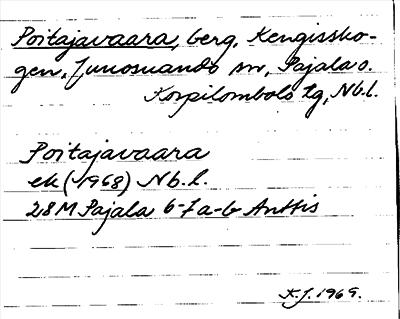 Poitajavaara, berg, Kengissko-
gen, Junosuando sn, Pajala o.
Korpilombolo tg, Nb.l.
Poitajavaara
ek (1968) Nb.l.
28M Pajala 6-7a-b Anttis
K.J. 1969.